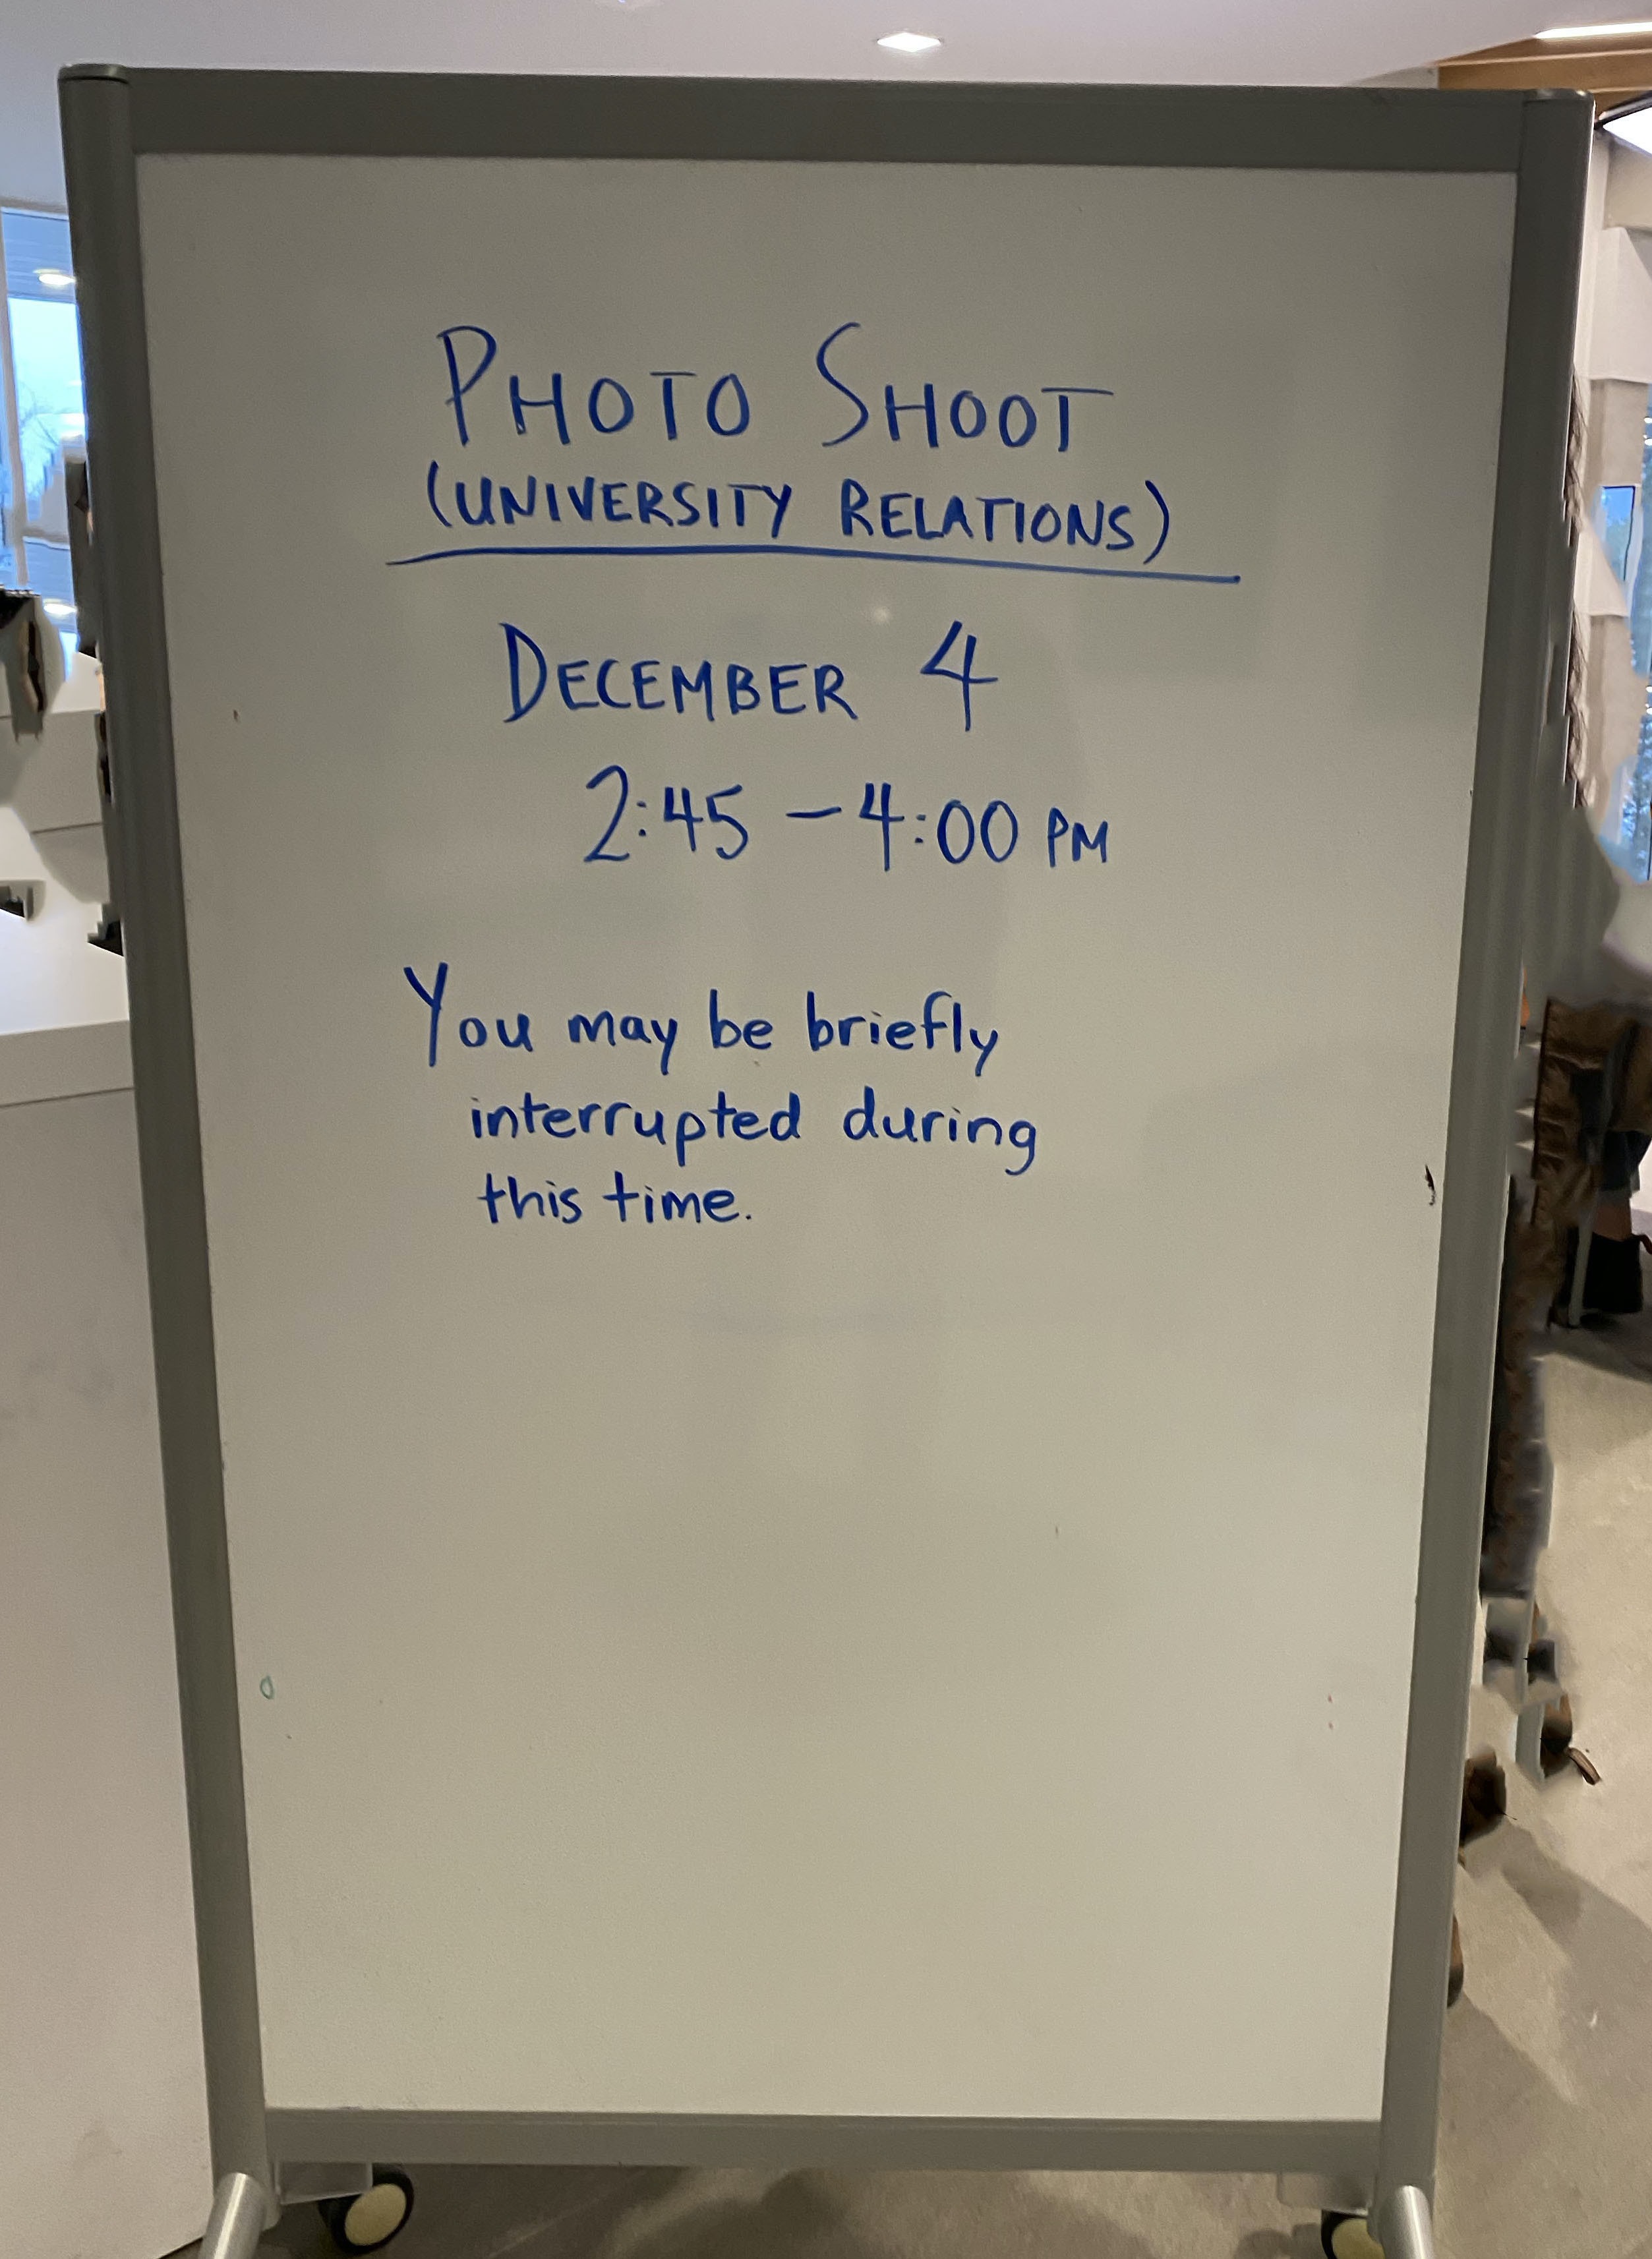 PHOTO SHOOT
(UNIVERSITY RELATIONS)
DECEMBER 4
2:45 – 4:00 PM
You may be briefly
interrupted during
this time.